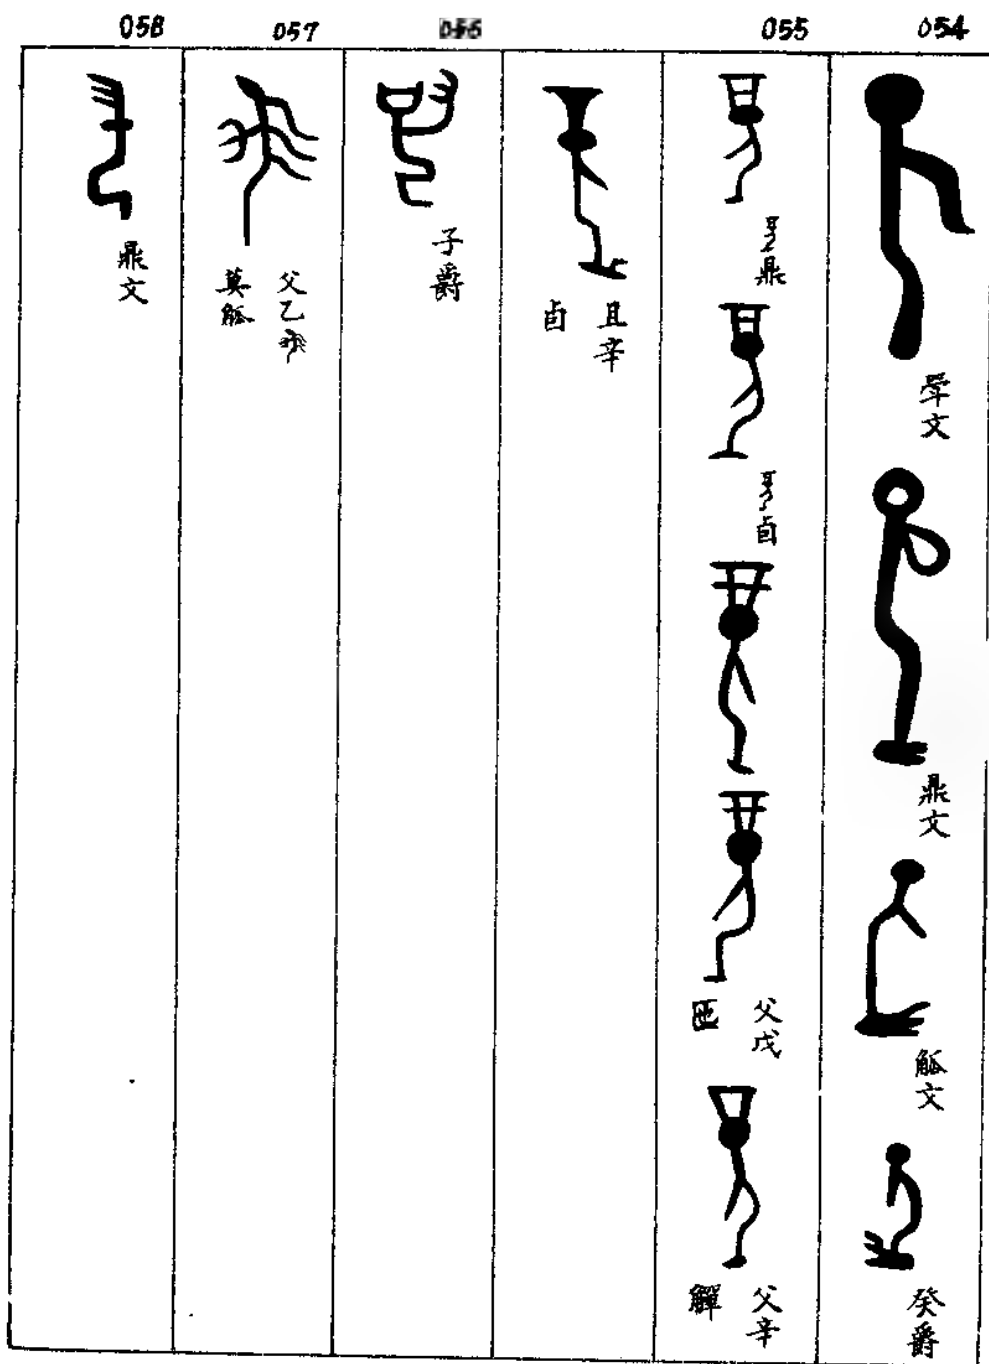 054
斝文
鼎文
觚文
癸爵
055
鼎
卣
父戊
匜
父辛
觶
且辛
卣
056
子爵
057
父乙
莫觚
058
鼎文